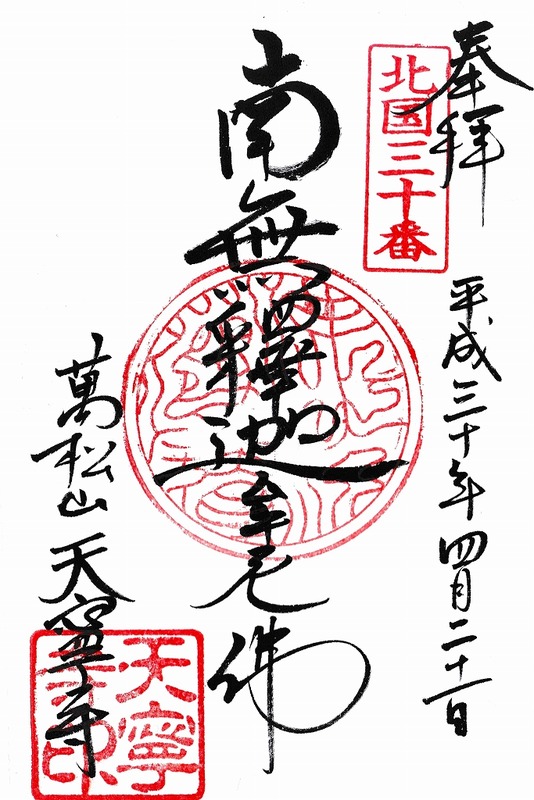 奉拝
北国三十番
平成三十年四月二十一日
南無釋迦牟尼佛
萬松山天寧寺
天寧
寺印